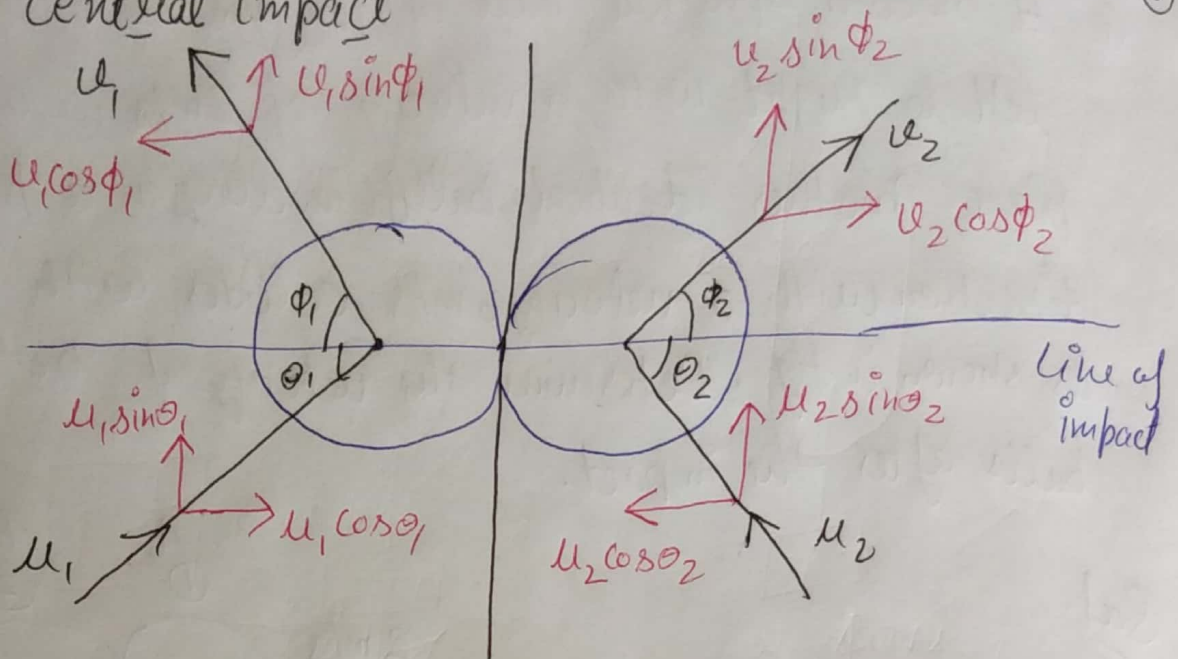 Central impact
v₁
v₁sinϕ₁
v₁cosϕ₁
v₂sinϕ₂
v₂
v₂cosϕ₂
ϕ₁
θ₁
ϕ₂
θ₂
Line of
impact
u₁sinθ₁
u₁cosθ₁
u₁
u₂sinθ₂
u₂cosθ₂
u₂